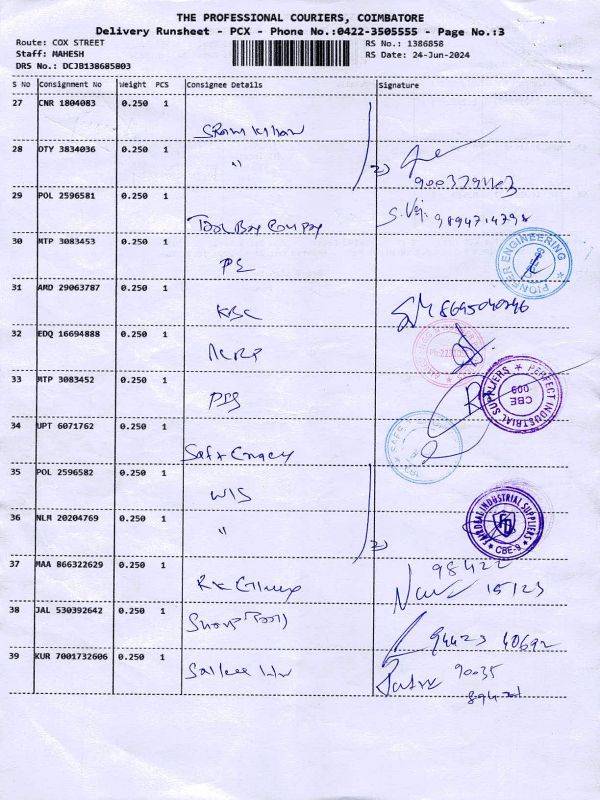 THE PROFESSIONAL COURIERS, COIMBATORE
Delivery Runsheet - PCX - Phone No.:0422-3505555 - Page No.:3
Route: COX STREET
Staff: MAHESH
DRS No.: DCJB138685803
RS No.: 1386858
RS Date: 24-Jun-2024
S No Consignment No Weight PCS Consignee Details Signature
27 CNR 1804083 0.250 1
28 OTY 3834036 0.250 1
"
2)
29 POL 2596581 0.250 1
Tool Box Company
9894714798
30 MTP 3083453 0.250 1
PE
PIONEER ENGINEERING
31 AMD 29063787 0.250 1
KBC
32 EDQ 16694888 0.250 1
33 MTP 3083452 0.250 1
PERFECT INDUSTRIAL SUPPLIERS
CBE
34 UPT 6071762 0.250 1
35 POL 2596582 0.250 1
WIS
36 NLM 20204769 0.250 1
"
2)
INDUSTRIAL SUPPLIERS
CBE-9
37 MAA 866322629 0.250 1
98422
15123
38 JAL 530392642 0.250 1
94423 40692
39 KUR 7001732606 0.250 1
90035